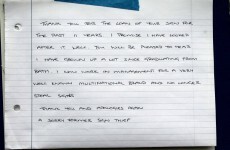 THANK YOU FOR THE LOAN OF YOUR SIGN FOR
THE PAST 11 YEARS. I PROMISE I HAVE LOOKED
AFTER IT WELL. YOU WILL BE PLEASED TO HEAR
I HAVE GROWN UP A LOT SINCE GRADUATING FROM
BATH. I NOW WORK IN MANAGEMENT FOR A VERY
WELL KNOWN MULTINATIONAL BRAND AND NO LONGER
STEAL SIGNS.
THANK YOU AND APOLOGIES AGAIN
A SORRY FORMER SIGN THIEF